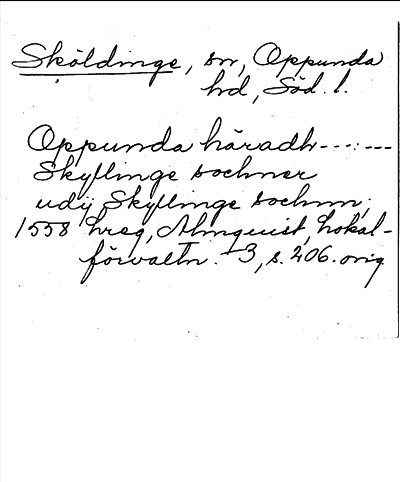 Sköldinge, sn, Oppunda
hd, Söd. l.
Oppunda häradh ---:---
Skyllinge sochner
udij Skyllinge sochnn;
1558 hreg, Almquist, Lokal-
förvaltn. 3, s. 206. orig